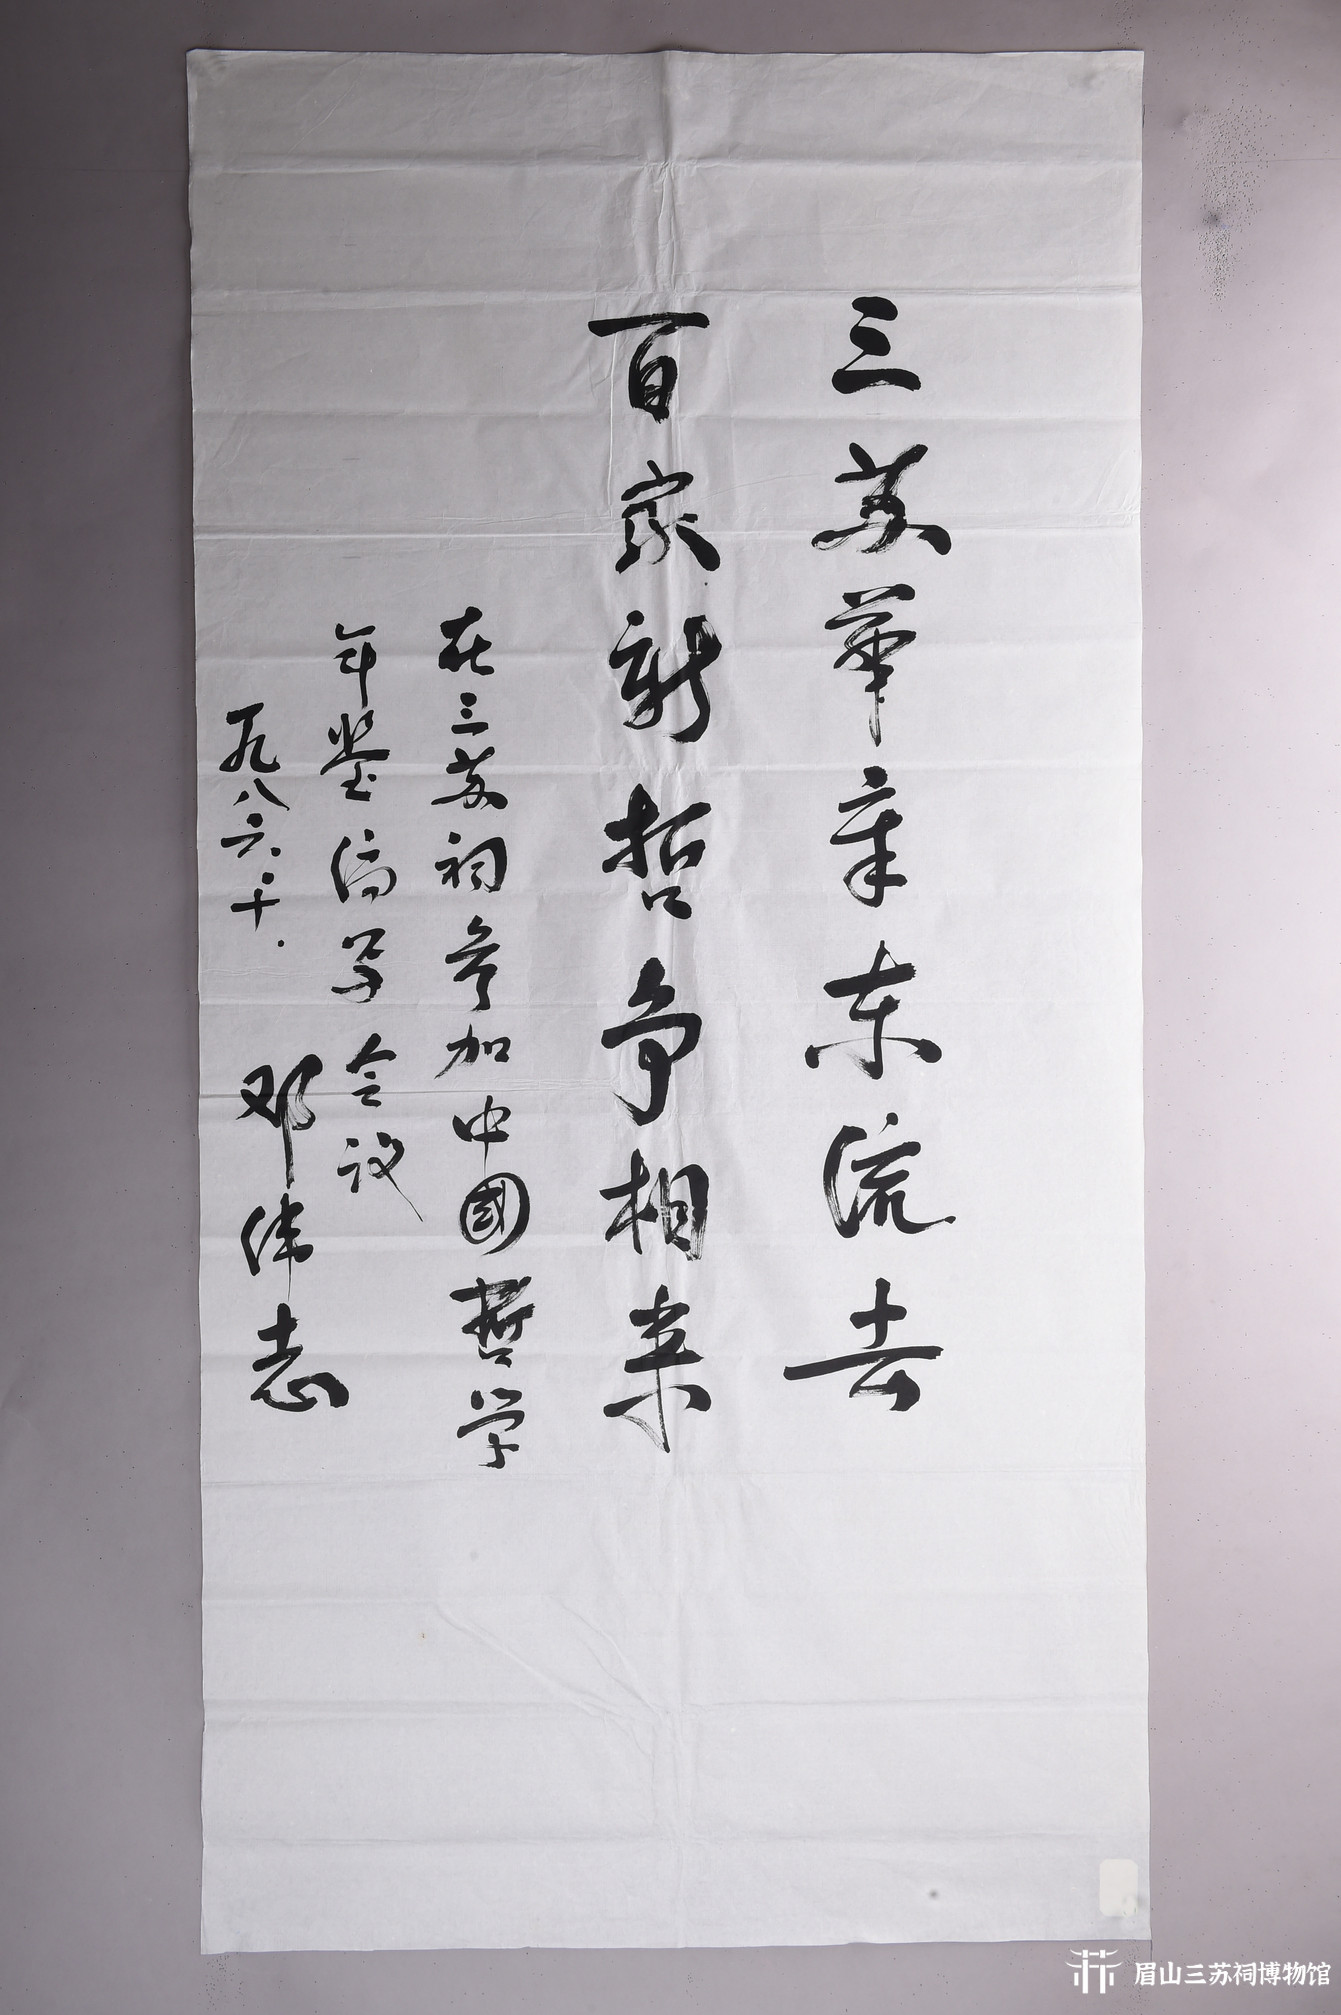 三苏华章东流去
百家新哲争相来
在三苏祠参加中國哲学
年鉴编写会议
一九八六.十.
邓伟志
眉山三苏祠博物馆